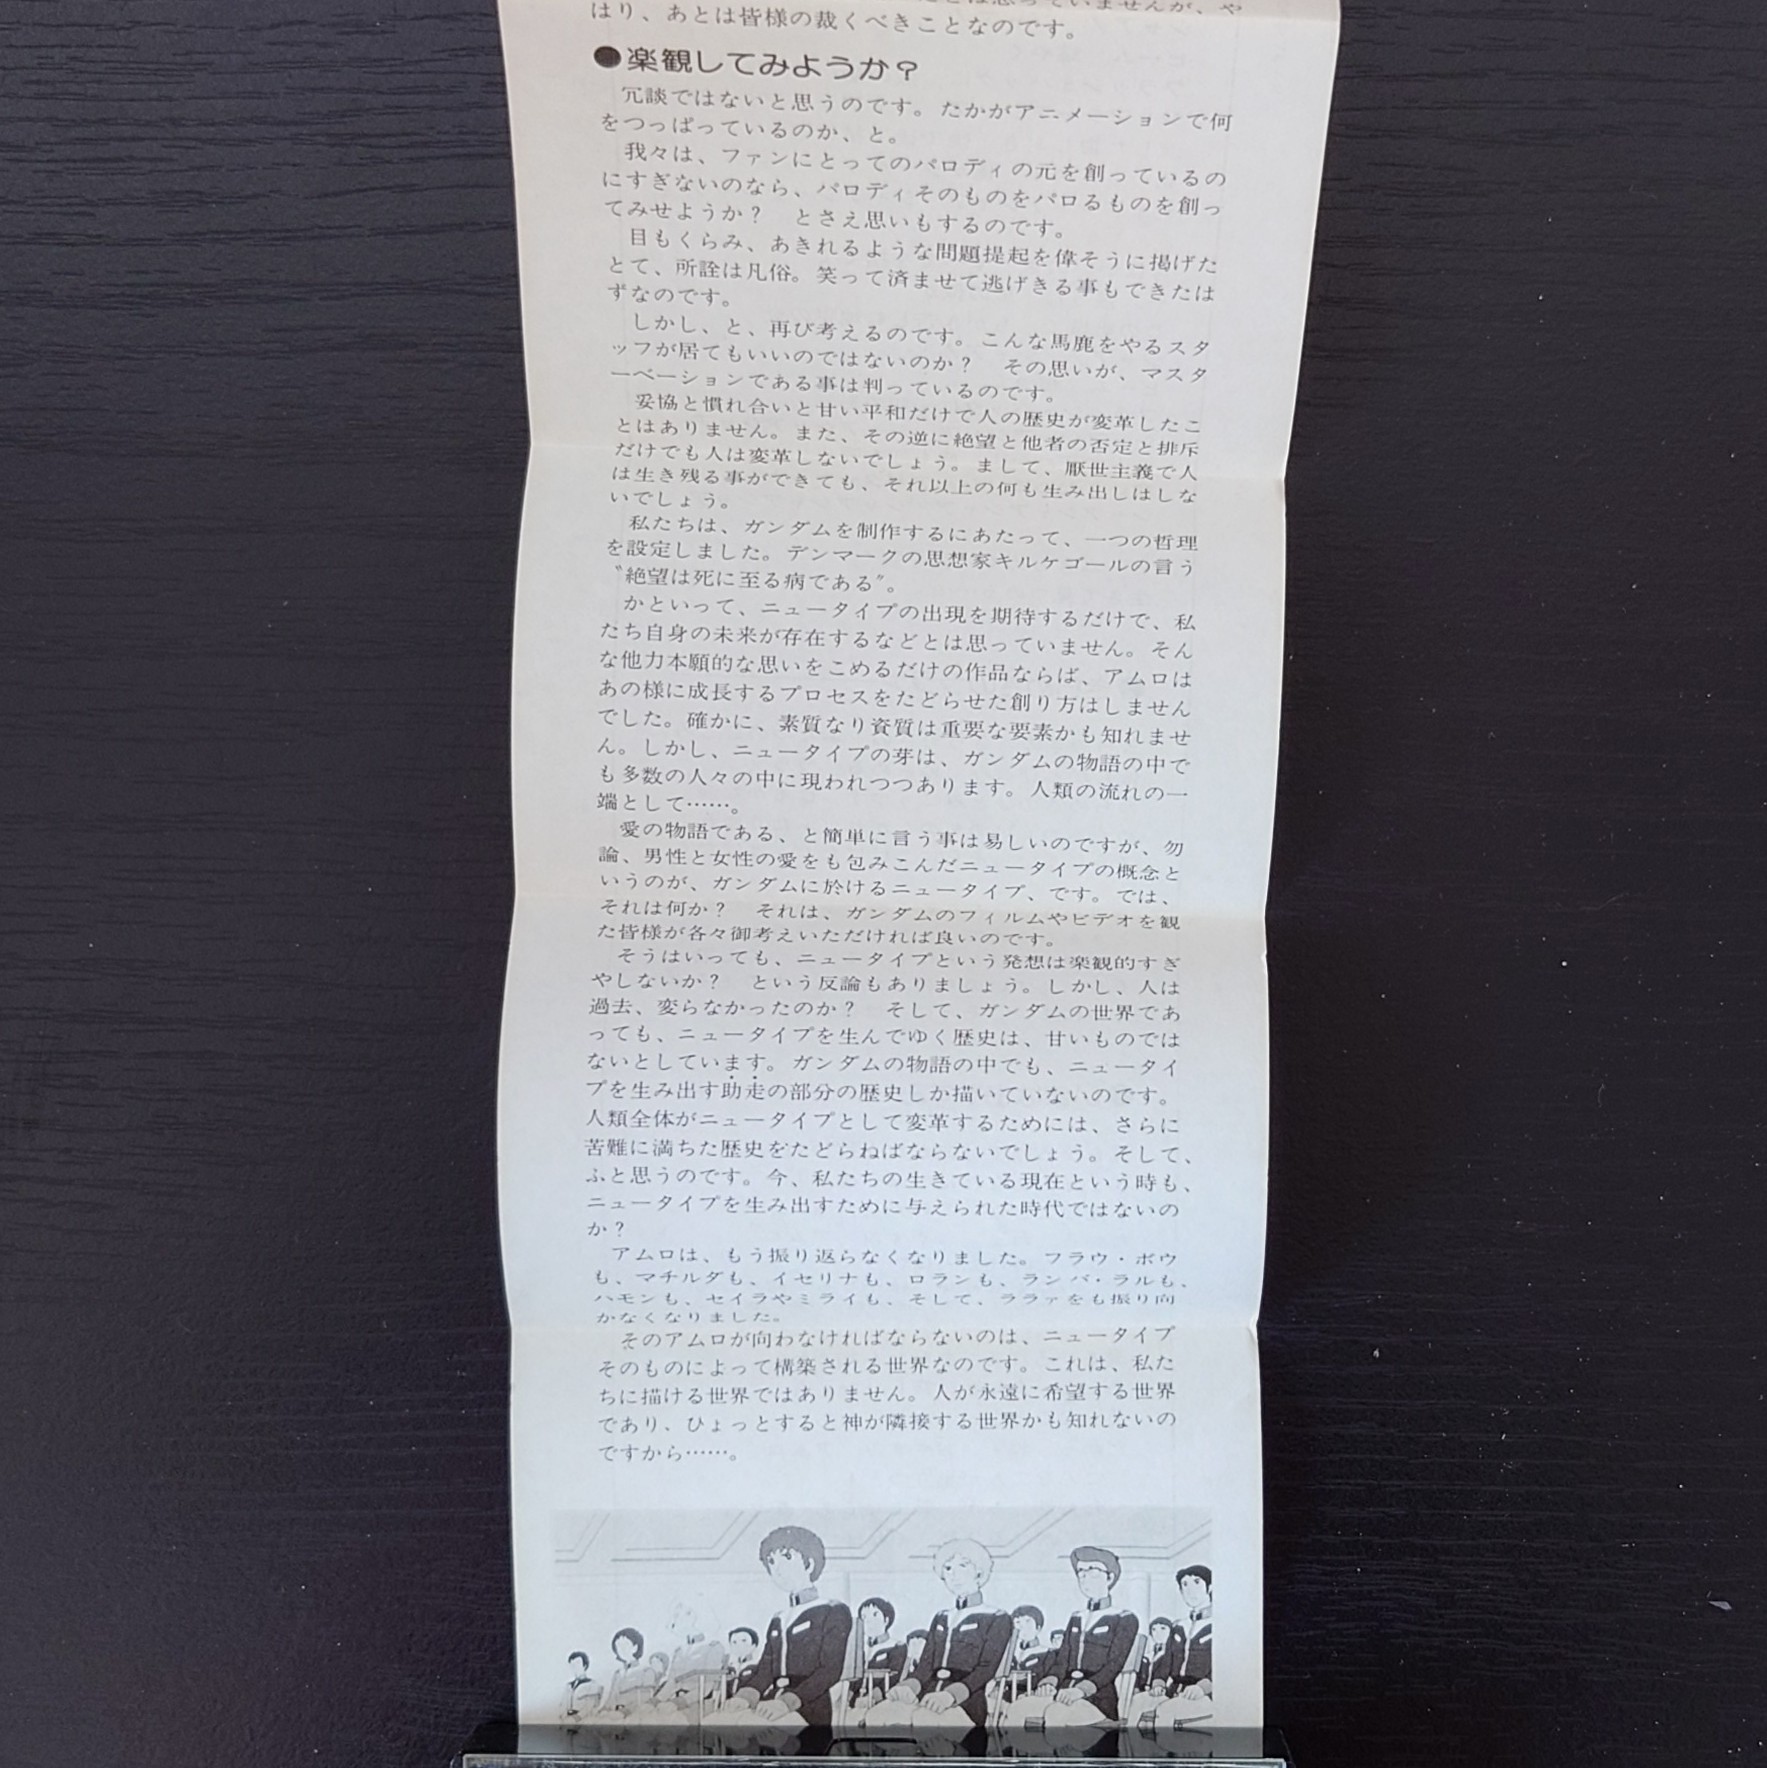 思っていませんが、や
はり、あとは皆様の裁くべきことなのです。
●楽観してみようか?
冗談ではないと思うのです。たかがアニメーションで何
をつっぱっているのか、と。
我々は、ファンにとってのパロディの元を創っているの
にすぎないのなら、パロディそのものをパロるものを創っ
てみせようか? とさえ思いもするのです。
目もくらみ、あきれるような問題提起を偉そうに掲げた
とて、所詮は凡俗。笑って済ませて逃げきる事もできたは
ずなのです。
しかし、と、再び考えるのです。こんな馬鹿をやるスタ
ッフが居てもいいのではないのか? その思いが、マスタ
ーベーションである事は判っているのです。
妥協と慣れ合いと甘い平和だけで人の歴史が変革したこ
とはありません。また、その逆に絶望と他者の否定と排斥
だけでも人は変革しないでしょう。まして、厭世主義で人
は生き残る事ができても、それ以上の何も生み出しはしな
いでしょう。
私たちは、ガンダムを制作するにあたって、一つの哲理
を設定しました。デンマークの思想家キルケゴールの言う
〝絶望は死に至る病である〞。
かといって、ニュータイプの出現を期待するだけで、私
たち自身の未来が存在するなどとは思っていません。そん
な他力本願的な思いをこめるだけの作品ならば、アムロは
あの様に成長するプロセスをたどらせた創り方はしません
でした。確かに、素質なり資質は重要な要素かも知れませ
ん。しかし、ニュータイプの芽は、ガンダムの物語の中で
も多数の人々の中に現われつつあります。人類の流れの一
端として……。
愛の物語である、と簡単に言う事は易しいのですが、勿
論、男性と女性の愛をも包みこんだニュータイプの概念と
いうのが、ガンダムに於けるニュータイプ、です。では、
それは何か? それは、ガンダムのフィルムやビデオを観
た皆様が各々御考えいただければ良いのです。
そうはいっても、ニュータイプという発想は楽観的すぎ
やしないか? という反論もありましょう。しかし、人は
過去、変らなかったのか? そして、ガンダムの世界であ
っても、ニュータイプを生んでゆく歴史は、甘いものでは
ないとしています。ガンダムの物語の中でも、ニュータイ
プを生み出す助走の部分の歴史しか描いていないのです。
人類全体がニュータイプとして変革するためには、さらに
苦難に満ちた歴史をたどらねばならないでしょう。そして、
ふと思うのです。今、私たちの生きている現在という時も、
ニュータイプを生み出すために与えられた時代ではないの
か?
アムロは、もう振り返らなくなりました。フラウ・ボウ
も、マチルダも、イセリナも、ロランも、ランバ・ラルも、
ハモンも、セイラやミライも、そして、ララァをも振り向
かなくなりました。
そのアムロが向わなければならないのは、ニュータイプ
そのものによって構築される世界なのです。これは、私た
ちに描ける世界ではありません。人が永遠に希望する世界
であり、ひょっとすると神が隣接する世界かも知れないの
ですから……。